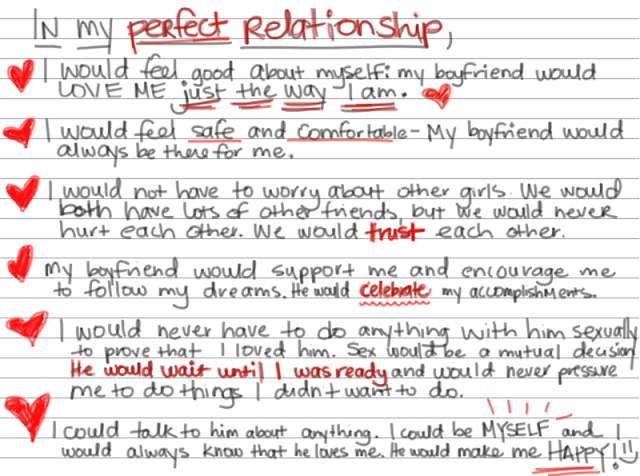 In my perfect relationship,
I would feel good about myself: my boyfriend would
LOVE ME just the way I am.
I would feel safe and comfortable - My boyfriend would
always be there for me.
I would not have to worry about other girls. We would
both have lots of other friends, but we would never
hurt each other. We would trust each other.
My boyfriend would support me and encourage me
to follow my dreams. He would celebrate my accomplishments.
I would never have to do anything with him sexually
to prove that I loved him. Sex would be a mutual decision
He would wait until I was ready and would never pressure
me to do things I didn't want to do.
I could talk to him about anything. I could be MYSELF and I
would always know that he loves me. He would make me HAPPY!